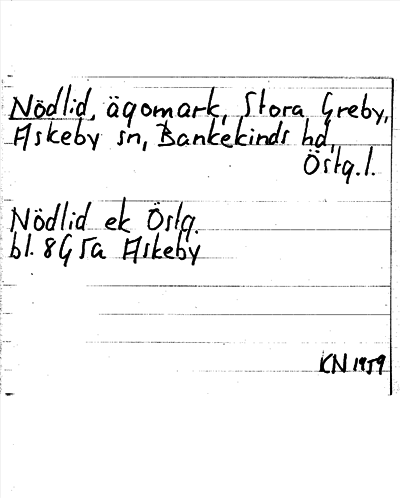 Nödlid, ägomark, Stora Greby,
Askeby sn, Bankekinds hd,
Östg.l.
Nödlid ek Östg.
bl. 8G 5a Askeby
KN 1959